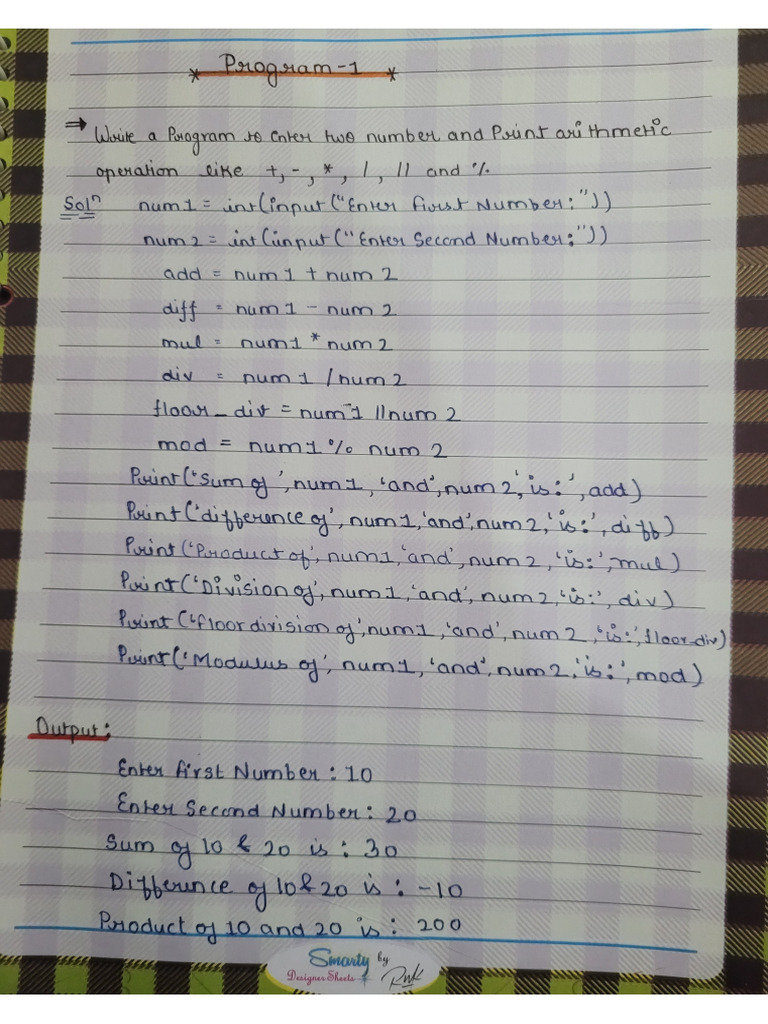 * Program-1 *
⇒ Write a Program to Enter two number and Print arithmetic
operation like +, -, *, /, // and %
Solⁿ num1 = int(input("Enter First Number:"))
num2 = int(input("Enter Second Number:"))
add = num1 + num2
diff = num1 - num2
mul = num1 * num2
div = num1 / num2
floor_div = num1 // num2
mod = num1 % num2
Print('Sum of', num1, 'and', num2, 'is:', add)
Print('difference of', num1, 'and', num2, 'is:', diff)
Print('Product of', num1, 'and', num2, 'is:', mul)
Print('Division of', num1, 'and', num2, 'is:', div)
Print('floor division of', num1, 'and', num2, 'is:', floor_div)
Print('Modulus of', num1, 'and', num2, 'is:', mod)
Output:
Enter First Number: 10
Enter Second Number: 20
Sum of 10 & 20 is: 30
Difference of 10 & 20 is: -10
Product of 10 and 20 is: 200
Smarty by
Designer Sheets